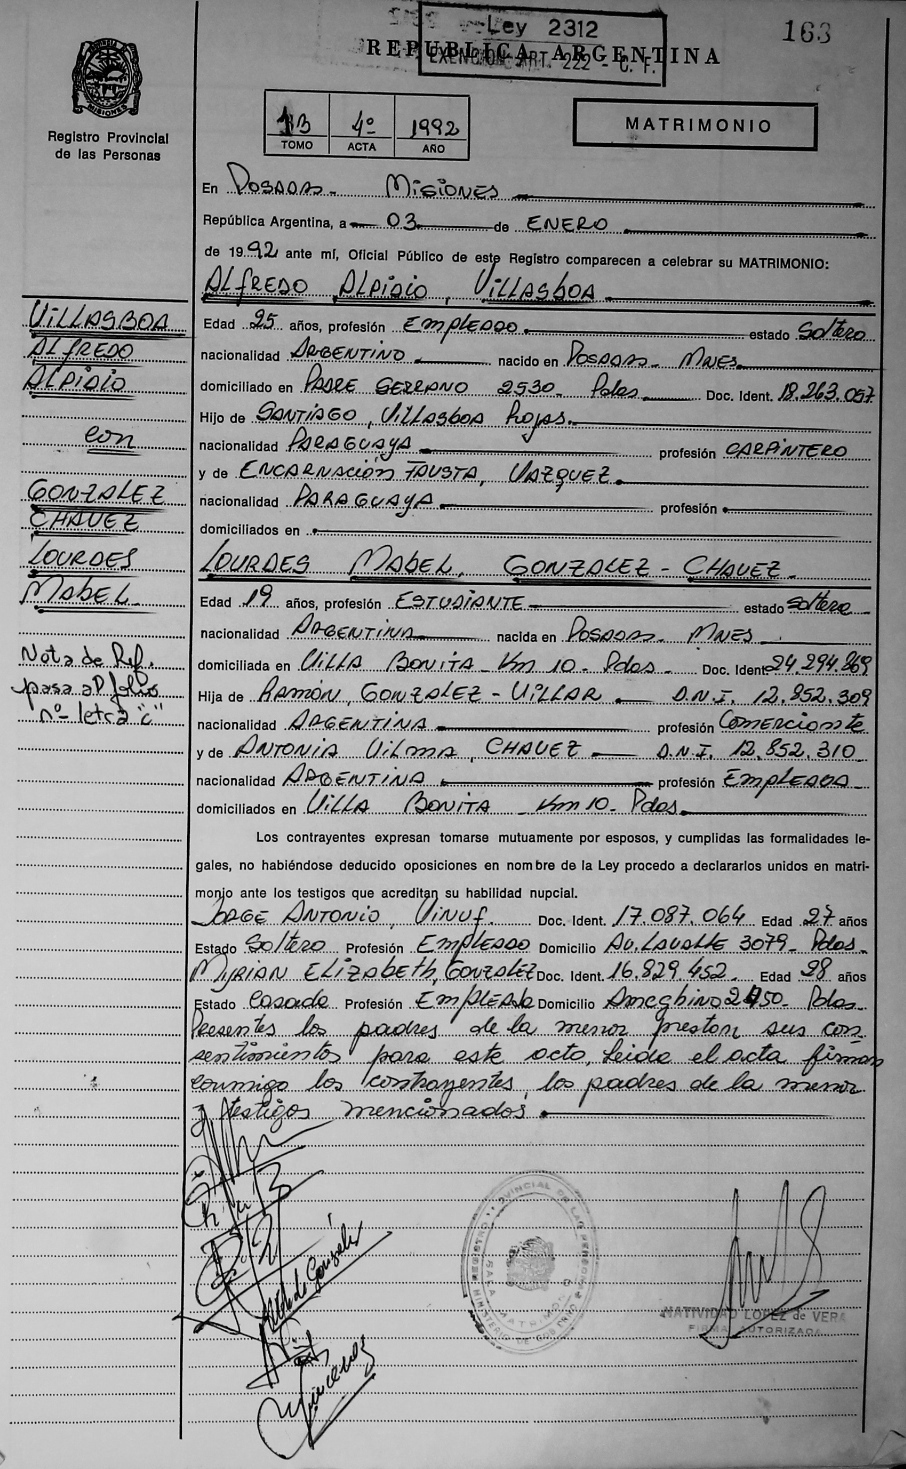 Ley 2312
163
REPUBLICA ARGENTINA
EXENCION ART. 222 - C. F.
MISIONES
Registro Provincial
de las Personas
1B 4º 1992
TOMO ACTA AÑO
MATRIMONIO
En POSADAS - MISIONES
República Argentina, a 03 de ENERO
de 1992 ante mí, Oficial Público de este Registro comparecen a celebrar su MATRIMONIO:
ALFREDO ALPIDIO, VILLASBOA
VILLASBOA
ALFREDO
ALPIDIO
con
GONZALEZ
CHAVEZ
LOURDES
MABEL
Nota de Ref.
pasa al folio
nº letra "c"
Edad 25 años, profesión EMPLEADO estado Soltero
nacionalidad ARGENTINO nacido en POSADAS - MNES
domiciliado en PADRE SERRANO 2530 - Pdas Doc. Ident. 18.263.057
Hijo de SANTIAGO, VILLASBOA Rojas
nacionalidad PARAGUAYA profesión CARPINTERO
y de ENCARNACIÓN FAUSTA, VAZQUEZ
nacionalidad PARAGUAYA profesión
domiciliados en
LOURDES MABEL, GONZALEZ - CHAVEZ
Edad 19 años, profesión ESTUDIANTE estado Soltera
nacionalidad ARGENTINA nacida en POSADAS - MNES
domiciliada en VILLA BONITA - Km 10 - Pdas Doc. Ident. 24.294.869
Hija de RAMÓN, GONZALEZ - VILLAR D.N.I. 12.852.309
nacionalidad ARGENTINA profesión Comerciante
y de ANTONIA VILMA, CHAVEZ D.N.I. 12.852.310
nacionalidad ARGENTINA profesión EMPLEADA
domiciliados en VILLA BONITA Km 10 - Pdas
Los contrayentes expresan tomarse mutuamente por esposos, y cumplidas las formalidades le-
gales, no habiéndose deducido oposiciones en nombre de la Ley procedo a declararlos unidos en matri-
monio ante los testigos que acreditan su habilidad nupcial.
JORGE ANTONIO, Doc. Ident. 17.087.064 Edad 27 años
Estado Soltero Profesión EMPLEADO Domicilio AV. LAVALLE 3079 - Pdas
MYRIAN ELIZABETH, GONZALEZ Doc. Ident. 16.829.452 Edad 28 años
Estado Casada Profesión EMPLEADA Domicilio Ameghino 2450 - Pdas
Presentes los padres de la menor prestan sus con-
sentimientos para este acto, Leida el acta firman
conmigo los contrayentes, los padres de la menor
y testigos mencionados.
de González
REGISTRO PROVINCIAL DE LAS PERSONAS
SALA MATRIMONIO
MINISTERIO DE GOBIERNO
NATIVIDAD LOPEZ de VERA
FIRMA AUTORIZADA